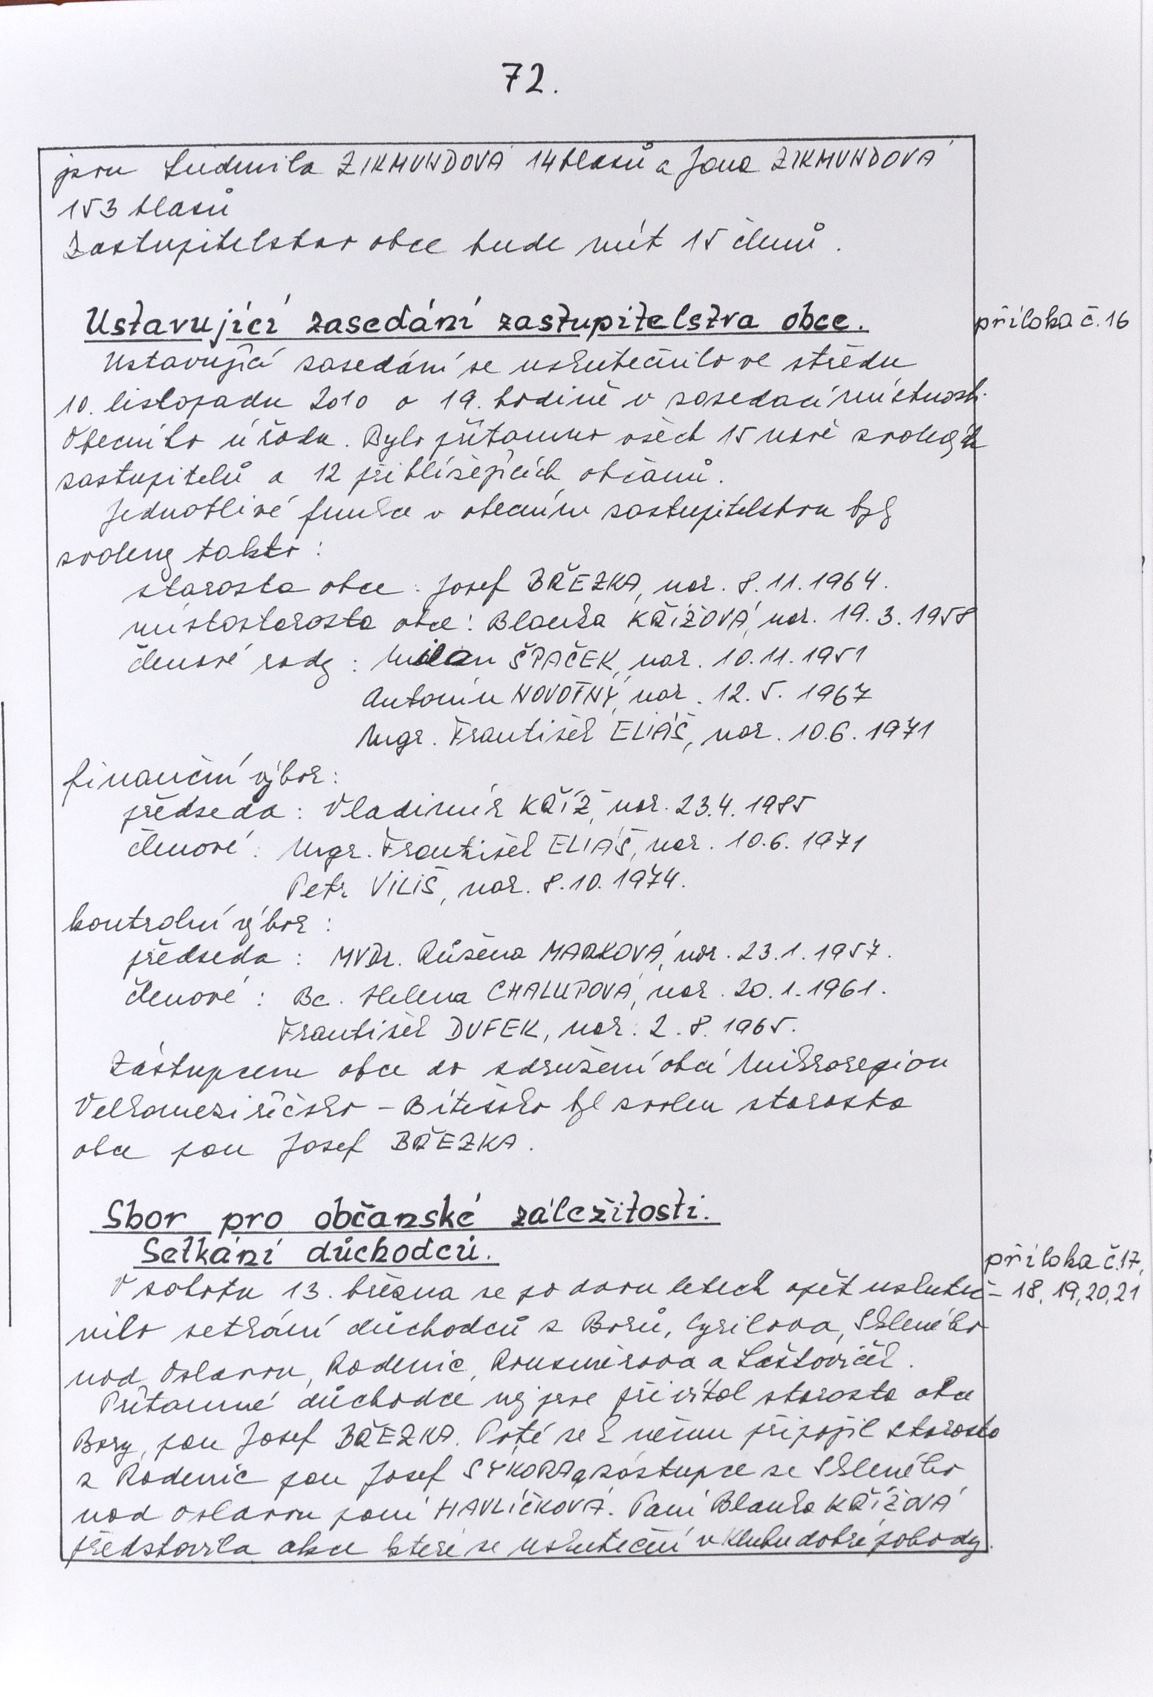 72.
jsou Ludmila ZIKMUNDOVÁ 14 hlasů a Jana ZIKMUNDOVÁ
153 hlasů
Zastupitelstvo obce bude mít 15 členů.
Ustavující zasedání zastupitelstva obce.
příloha č. 16
Ustavující zasedání se uskutečnilo ve středu
10. listopadu 2010 o 19. hodině v zasedací místnosti
Obecního úřadu. Bylo přítomno všech 15 nově zvolených
zastupitelů a 12 přihlížejících občanů.
Jednotlivé funkce v obecním zastupitelstvu byly
zvoleny takto:
starosta obce: Josef BŘEZKA, nar. 8.11.1964.
místostarosta obce: Blanka KŘÍŽOVÁ, nar. 19.3.1958
členové rady: Milan ŠPAČEK, nar. 10.11.1951
Antonín NOVOTNÝ, nar. 12.5.1967
Mgr. František ELIÁŠ, nar. 10.6.1971
finanční výbor:
předseda: Vladimír KŘÍŽ, nar. 23.4.1985
členové: Mgr. František ELIÁŠ, nar. 10.6.1971
Petr VILIŠ, nar. 8.10.1974.
kontrolní výbor:
předseda: MVDr. Růžena MARKOVÁ, nar. 23.1.1957.
členové: Bc. Helena CHALUPOVÁ, nar. 20.1.1961.
František DUFEK, nar. 2.8.1965.
Zástupcem obce do sdružení obcí Mikroregion
Velkomeziříčsko - Bítešsko byl zvolen starosta
obce pan Josef BŘEZKA.
Sbor pro občanské záležitosti.
Setkání důchodců.
příloha č. 17,
V sobotu 13. března se po dvou letech opět uskuteč-
18, 19, 20, 21
nilo setkání důchodců z Borů, Cyrilova, Skleného
nad Oslavou, Rodenic, Krasměrova a Laštoviček.
Přítomné důchodce nejprve přivítal starosta obce
Bory, pan Josef BŘEZKA. Poté se k němu připojil starosta
z Radenic pan Josef SÝKORA a zástupce ze Skleného
nad Oslavou paní HAVLÍČKOVÁ. Paní Blanka KŘÍŽOVÁ
představila akce které se uskuteční v Klubu dobré pohody.